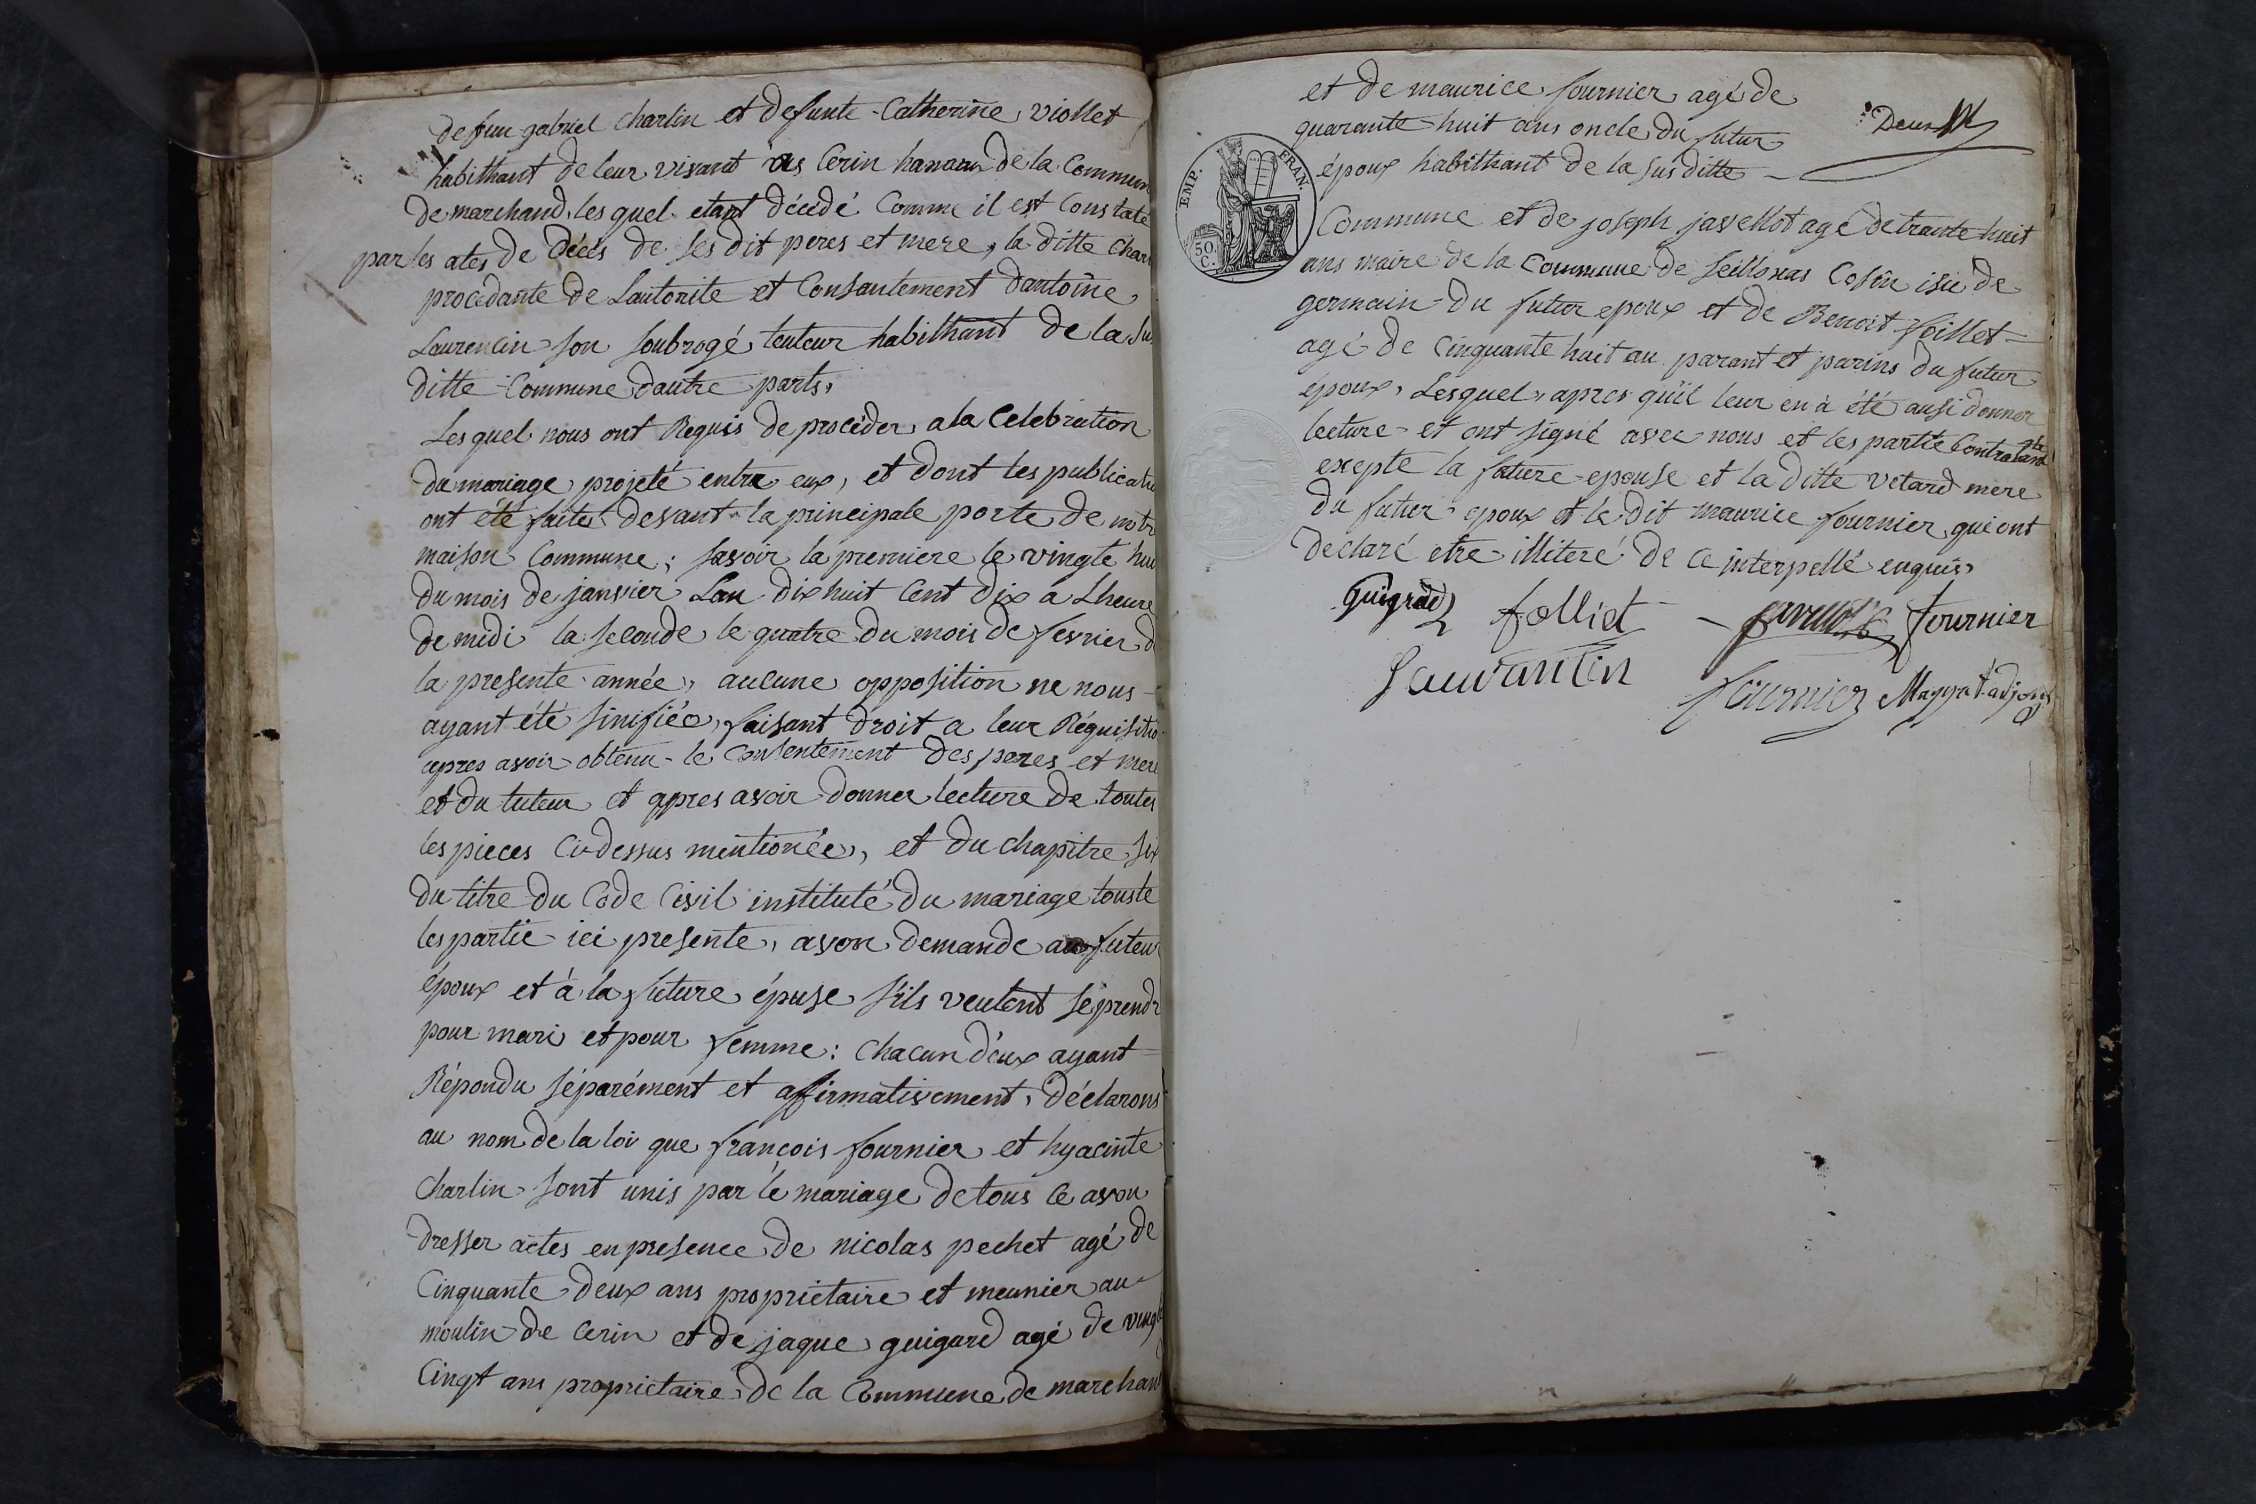 defun gabriel charlin et defunte Catherine viollet
habithant de leur vivant as Cerin hamau de la Commun
de marchand, les quel etant décédé Comme il est Constaté
par les ates de Décés de ses dit peres et mere, la ditte Char
procédante de Lautorite et Consantement dantoine
Laurencin son soubrogé tuteur habithant de la su
ditte Commune dautre parts,
Les quel nous ont Requis de procéder a la Celebration
du mariage projeté entre eux, et dont les publicatio
ont été faite devant la principale porte de notr
maison Commune; savoir la premiere le vingte hui
du mois de janvier Lan dix huit Cent dix a Lheure
de midi la seconde le quatre du mois de fevrier d
la presente année, aucune opposition ne nous
ayant été sinifiée, faisant droit a leur Réquisitio
apres avoir obtenu le Consentement des peres et mere
et du tuteur et apres avoir donner lecture de toutes
les pieces Ci-dessus mentionées, et du chapitre six
du titre du Code Civil institulé du mariage touste
les partie ici presente, avon demande au futeur
époux et à la future épuse s'ils veulent se prendr
pour mari et pour femme: chacun d'eux ayant
Répondu séparément et affirmativement, Déclarons
au nom de la loi que françois fournier et hyacinte
Charlin sont unis par le mariage de tous ce avon
dresser actes en presence de nicolas pechet agé de
Cinquante deux ans propriétaire et meunier au
moulin de Cerin et de jaque guigard agé de vingt
Cinqt ans propriétaire de la Commune de marchan
et de maurice fournier agé de
quarante huit ans oncle du futur
époux habithant de la susditte
Deux
EMP. FRAN.
50 C.
Commune et de joseph javellot agé de trante huit
ans maire de la Commune de seillonas Cosin isu de
germain du futur epoux et de Benoit foillet
agé de Cinquante huit an parant et parins du futur
époux, Lesquel, apres qu'il leur en à été ausi donner
lecture et ont signé avec nous et les partie Contratante
exepte la future epouse et la ditte vetard mere
du futur epoux et le dit maurice fournier qui ont
déclaré etre illiteré de ce interpellé enquis,
Guigrad folliet javellot fournier
Laurancin
fournier Maygrat adjoint